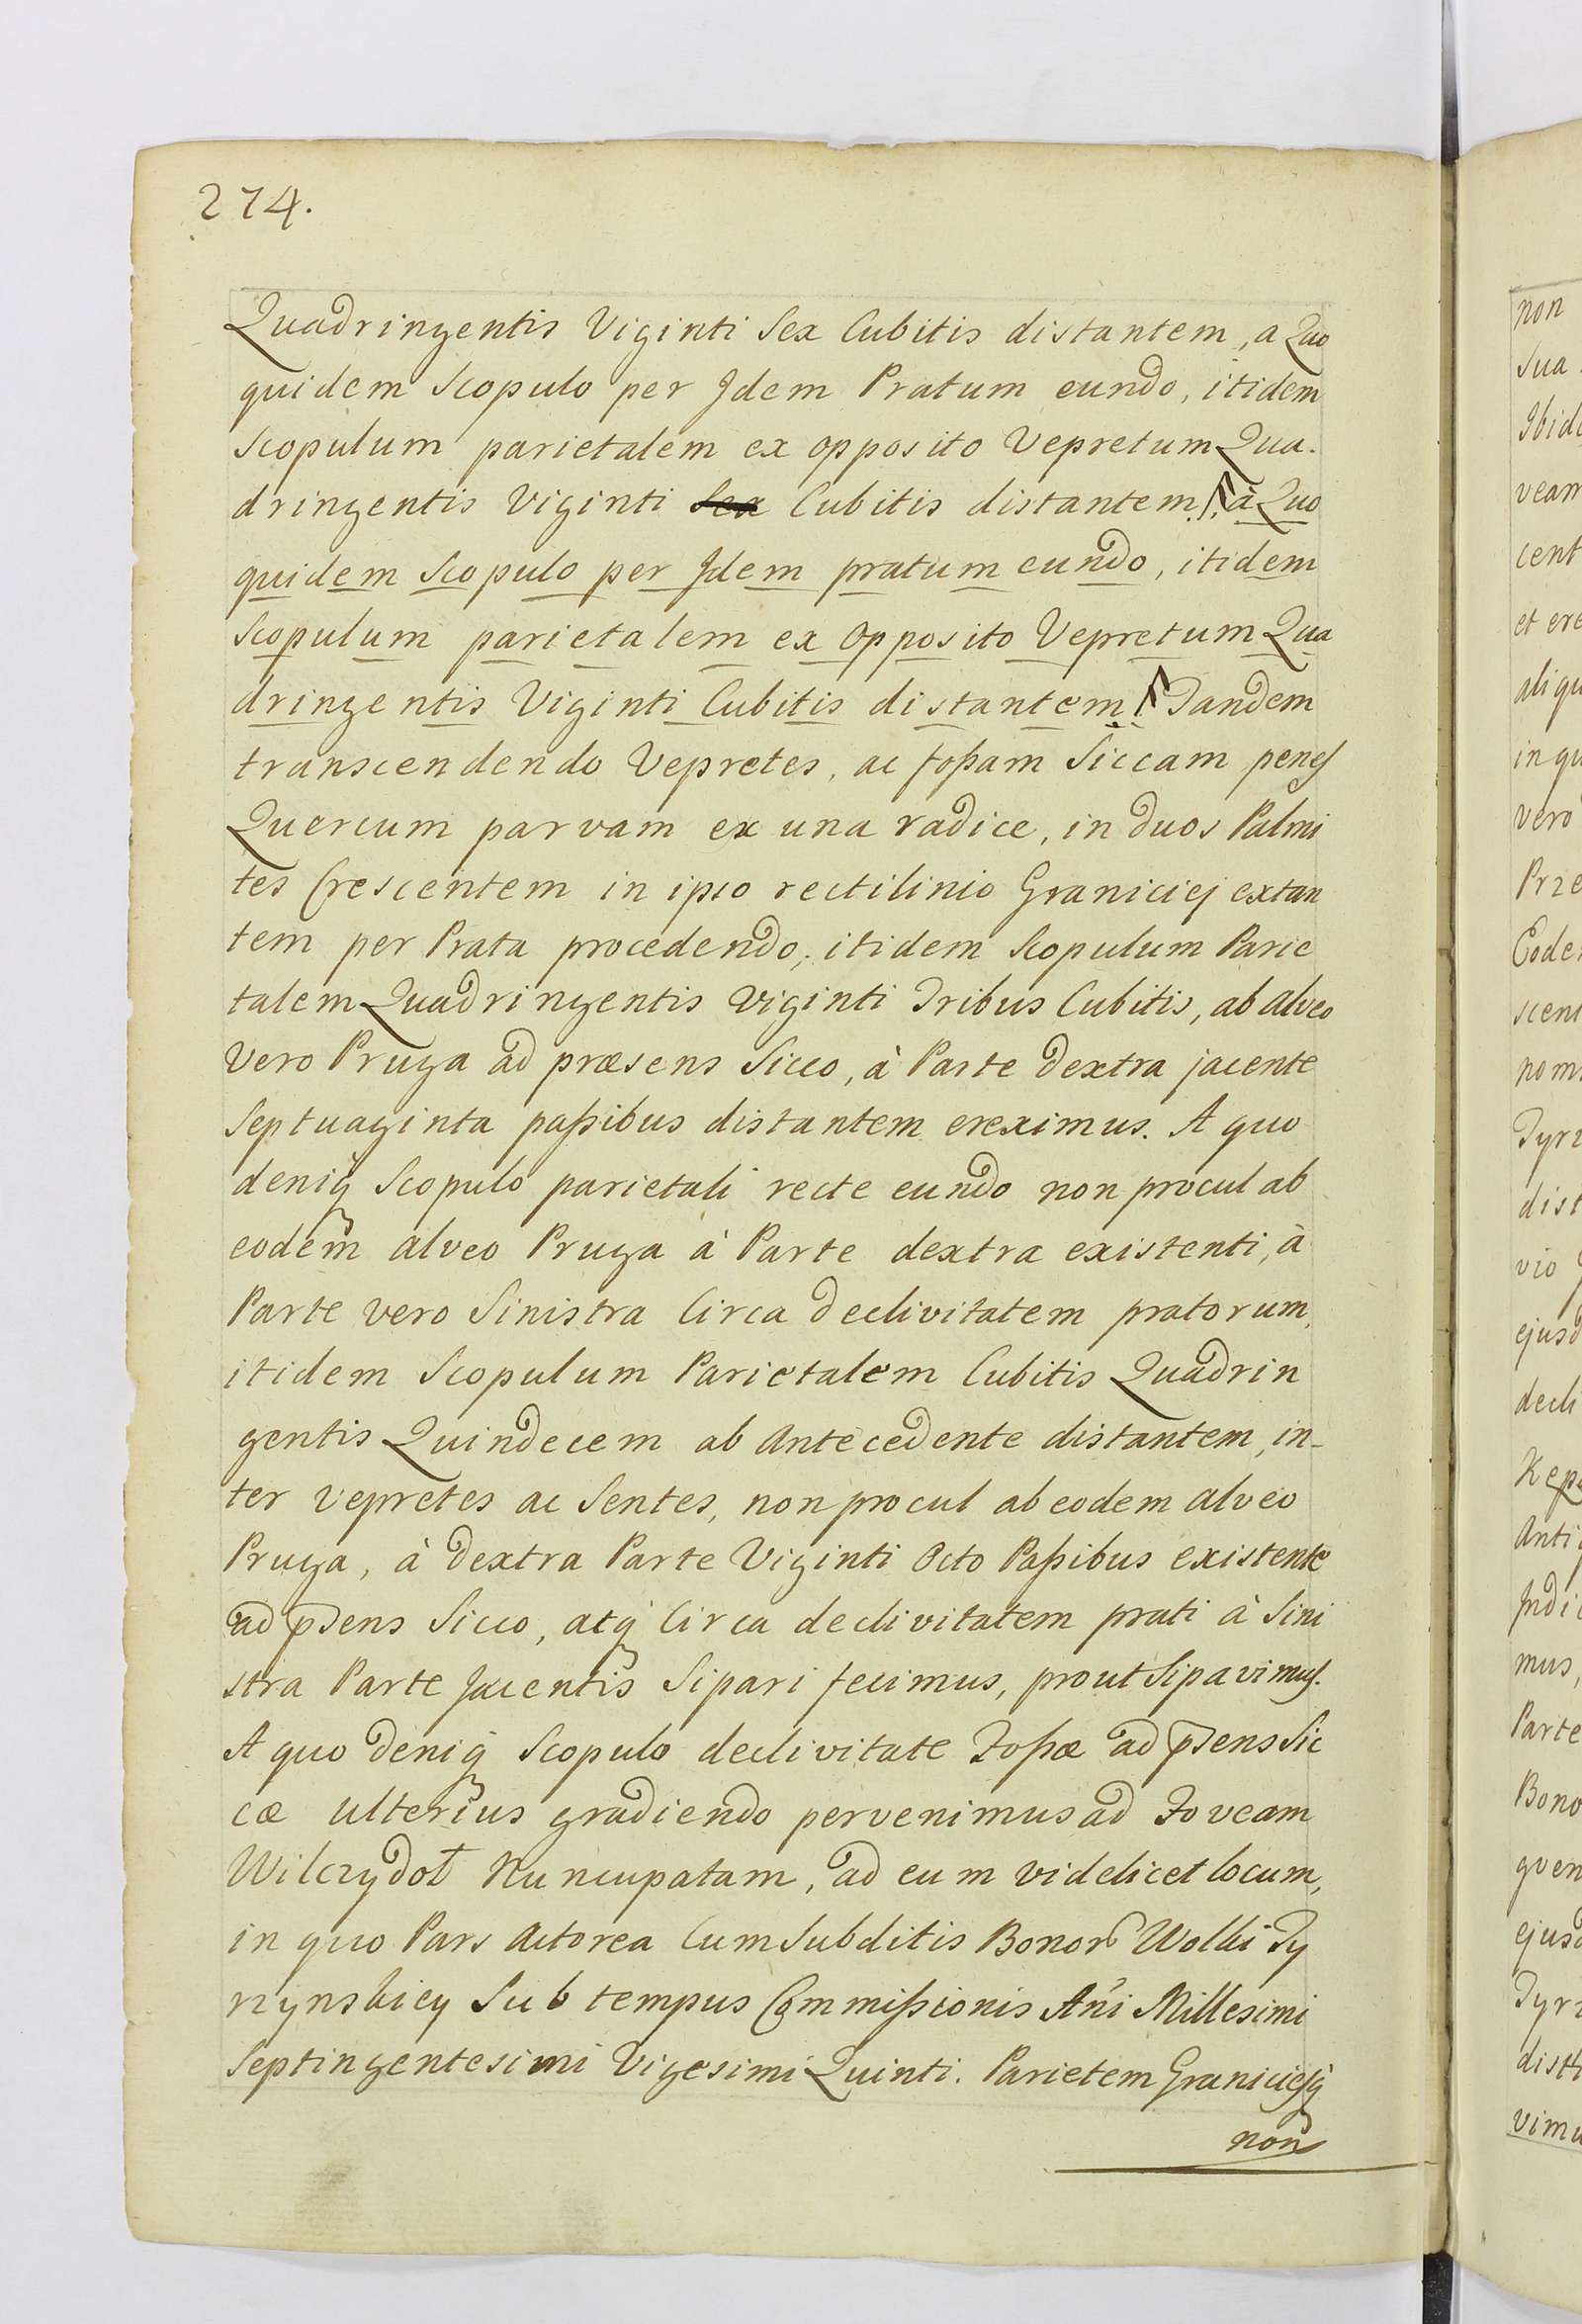 274.
Quadringentis Viginti Sex Cubitis distantem, a Quo
quidem Scopulo per Jdem Pratum eundo, itidem
Scopulum parietalem ex opposito Vepretum Qua.
dringentis Viginti Sex Cubitis distantem /: à Quo
quidem Scopulo per Jdem pratum eundo, itidem
Scopulum parietalem ex Opposito Vepretum Qua
dringentis Viginti Cubitis distantem :/ Tandem
transcendendo Vepretes, ac foßam Siccam penes
Quercum parvam ex una radice, in duos Palmi
tes Crescentem in ipso rectilinio Graniciej extan
tem per Prata procedendo, itidem Scopulum Parie
talem Quadringentis Viginti Tribus Cubitis, ab alveo
Vero Pruga ad præsens Sicco, à Parte dextra jacente
Septuaginta paßibus distantem ereximus. A quo
deniq Scopulo parietali recte eundo non procul ab
eodem alveo Pruga à Parte dextra existenti, à
Parte vero Sinistra Circa declivitatem pratorum,
itidem Scopulum Parietalem Cubitis Quadrin
gentis Quindecem ab Antecedente distantem, in-
ter vepretes ac Sentes, non procul ab eodem alveo
Pruga, à dextra Parte Viginti Octo Paßibus existente
ad psens Sicco, atq Circa declivitatem prati à Sini
stra Parte Jacentis Sipari fecimus, prout Sipavimus.
A quo deniq Scopulo declivitate Foßæ ad psens Sic
cæ ulterius gradiendo pervenimus ad Foveam
Wilczydoł Nuncupatam, ad eum videlicet locum,
in quo Pars Actorea Cum Subditis Bonor Wolki Ty
rzynskiey Sub tempus Commißionis Ani Millesimi
Septingentesimi Vigesimi Quinti. Parietem Graniciesq
non
non
Sua
Ibid
veam
cent
et ere
aliqu
in qu
vero
Prze
Eode
scen
nom
Tyrz
dist
vio
ejusd
decli
Kep
Anti
Jndi
mus,
Parte
Bono
quen
ejusd
Tyrz
dist
vimu